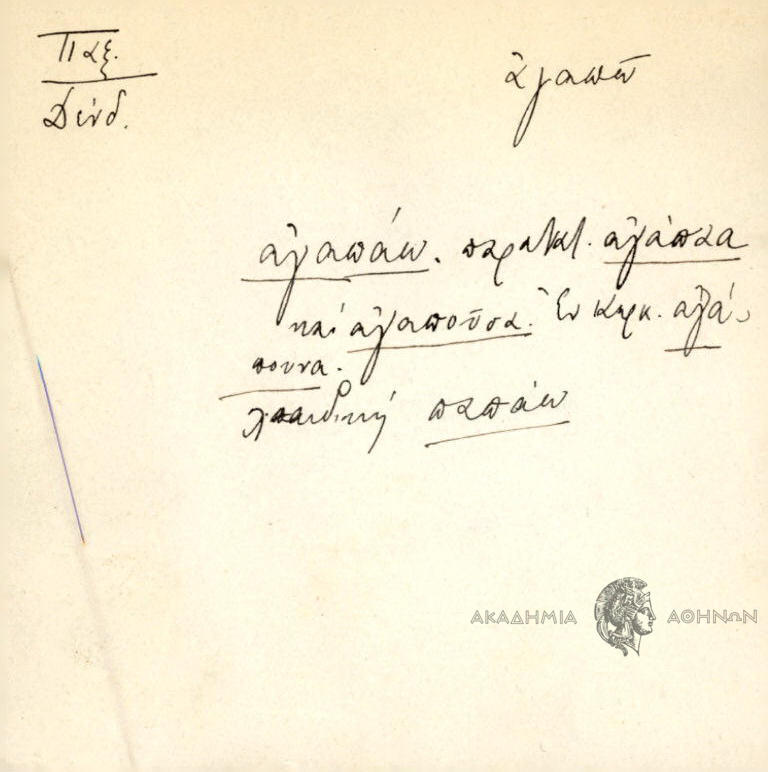 Παξ.
Δενδ.
ἀγαπῶ
ἀγαπάω. παρατατ. ἀγάπαα
καί ἀγαποῦσα. Ἐν Κερκ. ἀγά-
πουνα.
παιδική παπάω
ΑΚΑΔΗΜΙΑ ΑΘΗΝΩΝ